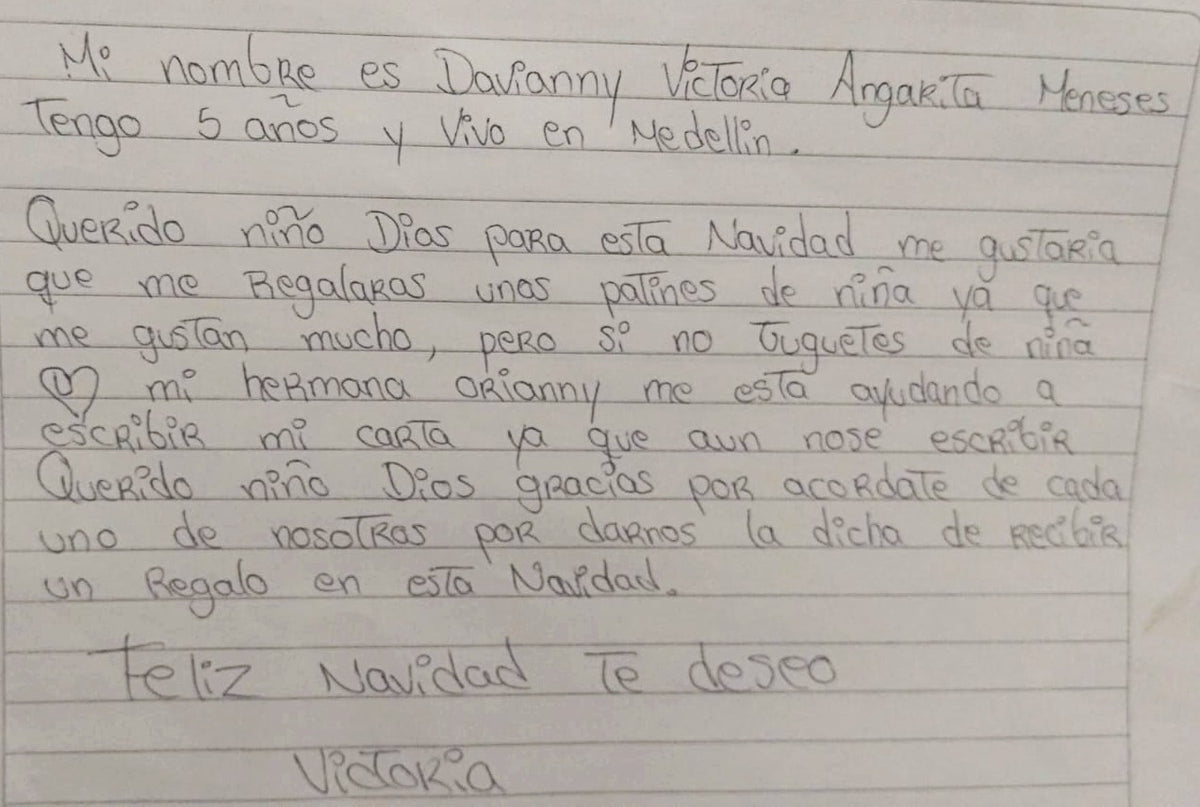 Mi nombre es Davianny Victoria Angarita Meneses
Tengo 5 años y vivo en Medellin.
Querido niño Dios para esta Navidad me gustaria
que me Regalaras unos patines de niña ya que
me gustan mucho, pero si no Juguetes de niña
mi hermana orianny me esta ayudando a
escribir mi carta ya que aun nose escribir
Querido niño Dios gracias por acordate de cada
uno de nosotras por darnos la dicha de recibir
un Regalo en esta Navidad.
Feliz Navidad Te deseo
Victoria